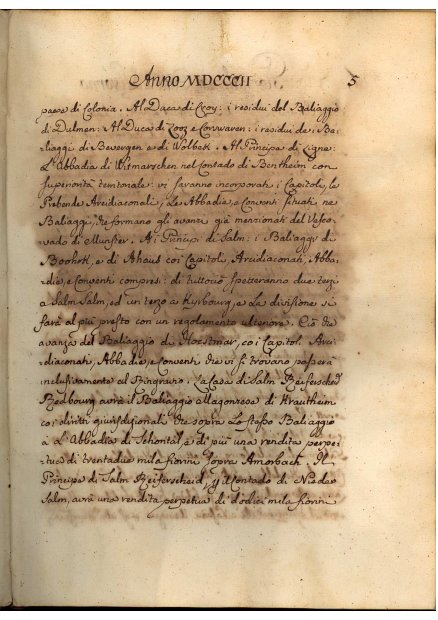 Anno MDCCCII 5
paese di Colonia. Al Duca di Croy: i residui del Baliaggio
di Dulmen: Al Duca di Looz e Corwaren: i residui de' Ba-
liaggi di Bevergen e di Wolbek. Al Principe di Ligne:
L'Abbadia di Witmarschen nel Contado di Bentheim con
superiorità territoriale: vi saranno incorporati i Capitoli, le
Prebende Arcidiaconali, Le Abbadie, e Conventi situati ne'
Baliaggi, che formano gli avanzi già menzionati del Vesco-
vado di Munster. Ai Principi di Salm: i Baliaggi di
Bocholt, e di Ahaus coi Capitoli, Arcidiaconati, Abba-
die, e Conventi compresi: di tuttociò spetteranno due terzi
a Salm Salm, ed un terzo a Kyrbourg, e La divisione si
farà al più presto con un regolamento ulteriore. Ciò che
avanza del Baliaggio di Horstmar, co i Capitoli Arci-
diaconati, Abbadie, e Conventi che vi si trovano passerà
inclusivamente al Ringravio. La Casa di Salm Reifescheid
Bedbourg avrà il Baliaggio Magontese di Krautheim
coi diritti giurisdizionali che sopra Lo stesso Baliaggio
à L'Abbadia di Schontal, e di più una rendita perpe-
tua di trentadue mila fiorini sopra Amorbach. Il
Principe di Salm Reiferscheid, pel Contado di Nieder
Salm, avrà una rendita perpetua di dodici mila fiorini